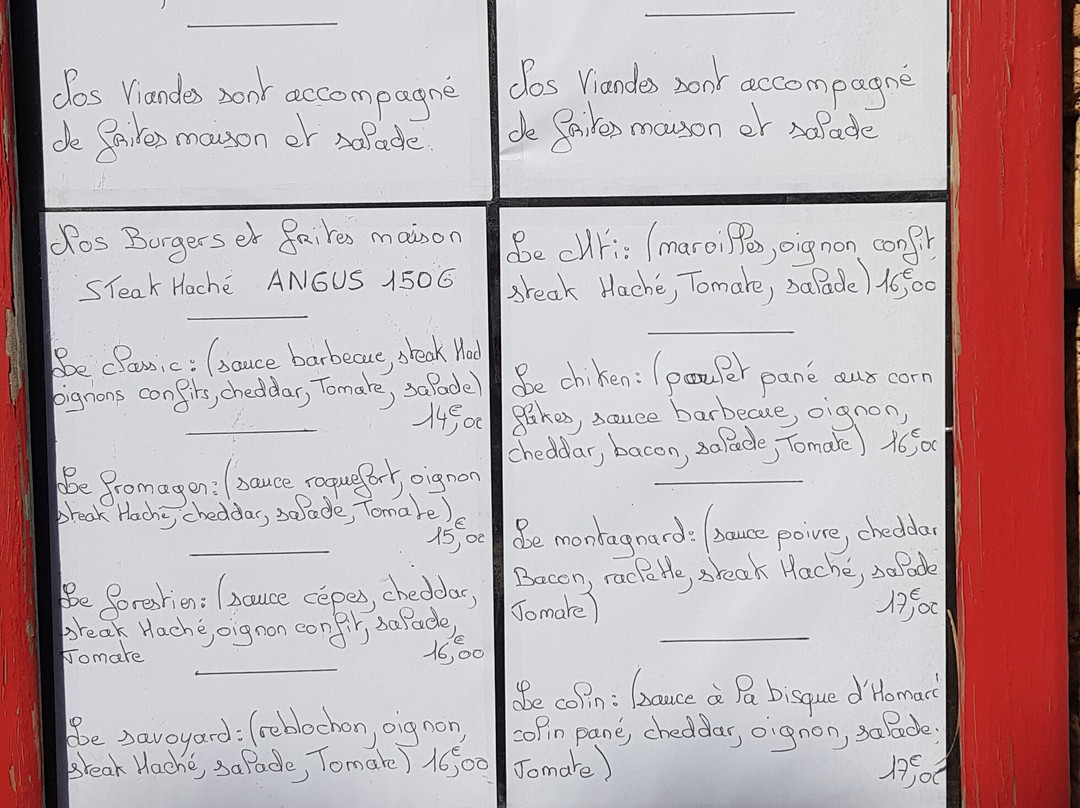 Nos Viandes sont accompagné
de frites maison et salade.
Nos Burgers et frites maison
Steak Haché ANGUS 150G
Le classic : (sauce barbecue, steak Hach
oignons confits, cheddar, Tomate, salade)
14,€00
Le fromager : (sauce roquefort, oignon
steak Haché, cheddar, salade, Tomate)
15,€00
Le forestier : (sauce cépes, cheddar,
steak Haché, oignon confit, salade,
Tomate 16,€00
Le savoyard : (reblochon, oignon,
steak Haché, salade, Tomate) 16,€00
Nos Viandes sont accompagné
de frites maison et salade
Le chti : (maroilles, oignon confit
steak Haché, Tomate, salade) 16,€00
Le chiken : (poulet pané aux corn
flakes, sauce barbecue, oignon,
cheddar, bacon, salade, Tomate) 16,€00
Le montagnard : (sauce poivre, cheddar
Bacon, raclette, steak Haché, salade
Tomate) 17,€00
Le colin : (sauce à la bisque d'Homard
colin pané, cheddar, oignon, salade,
Tomate) 17,€00